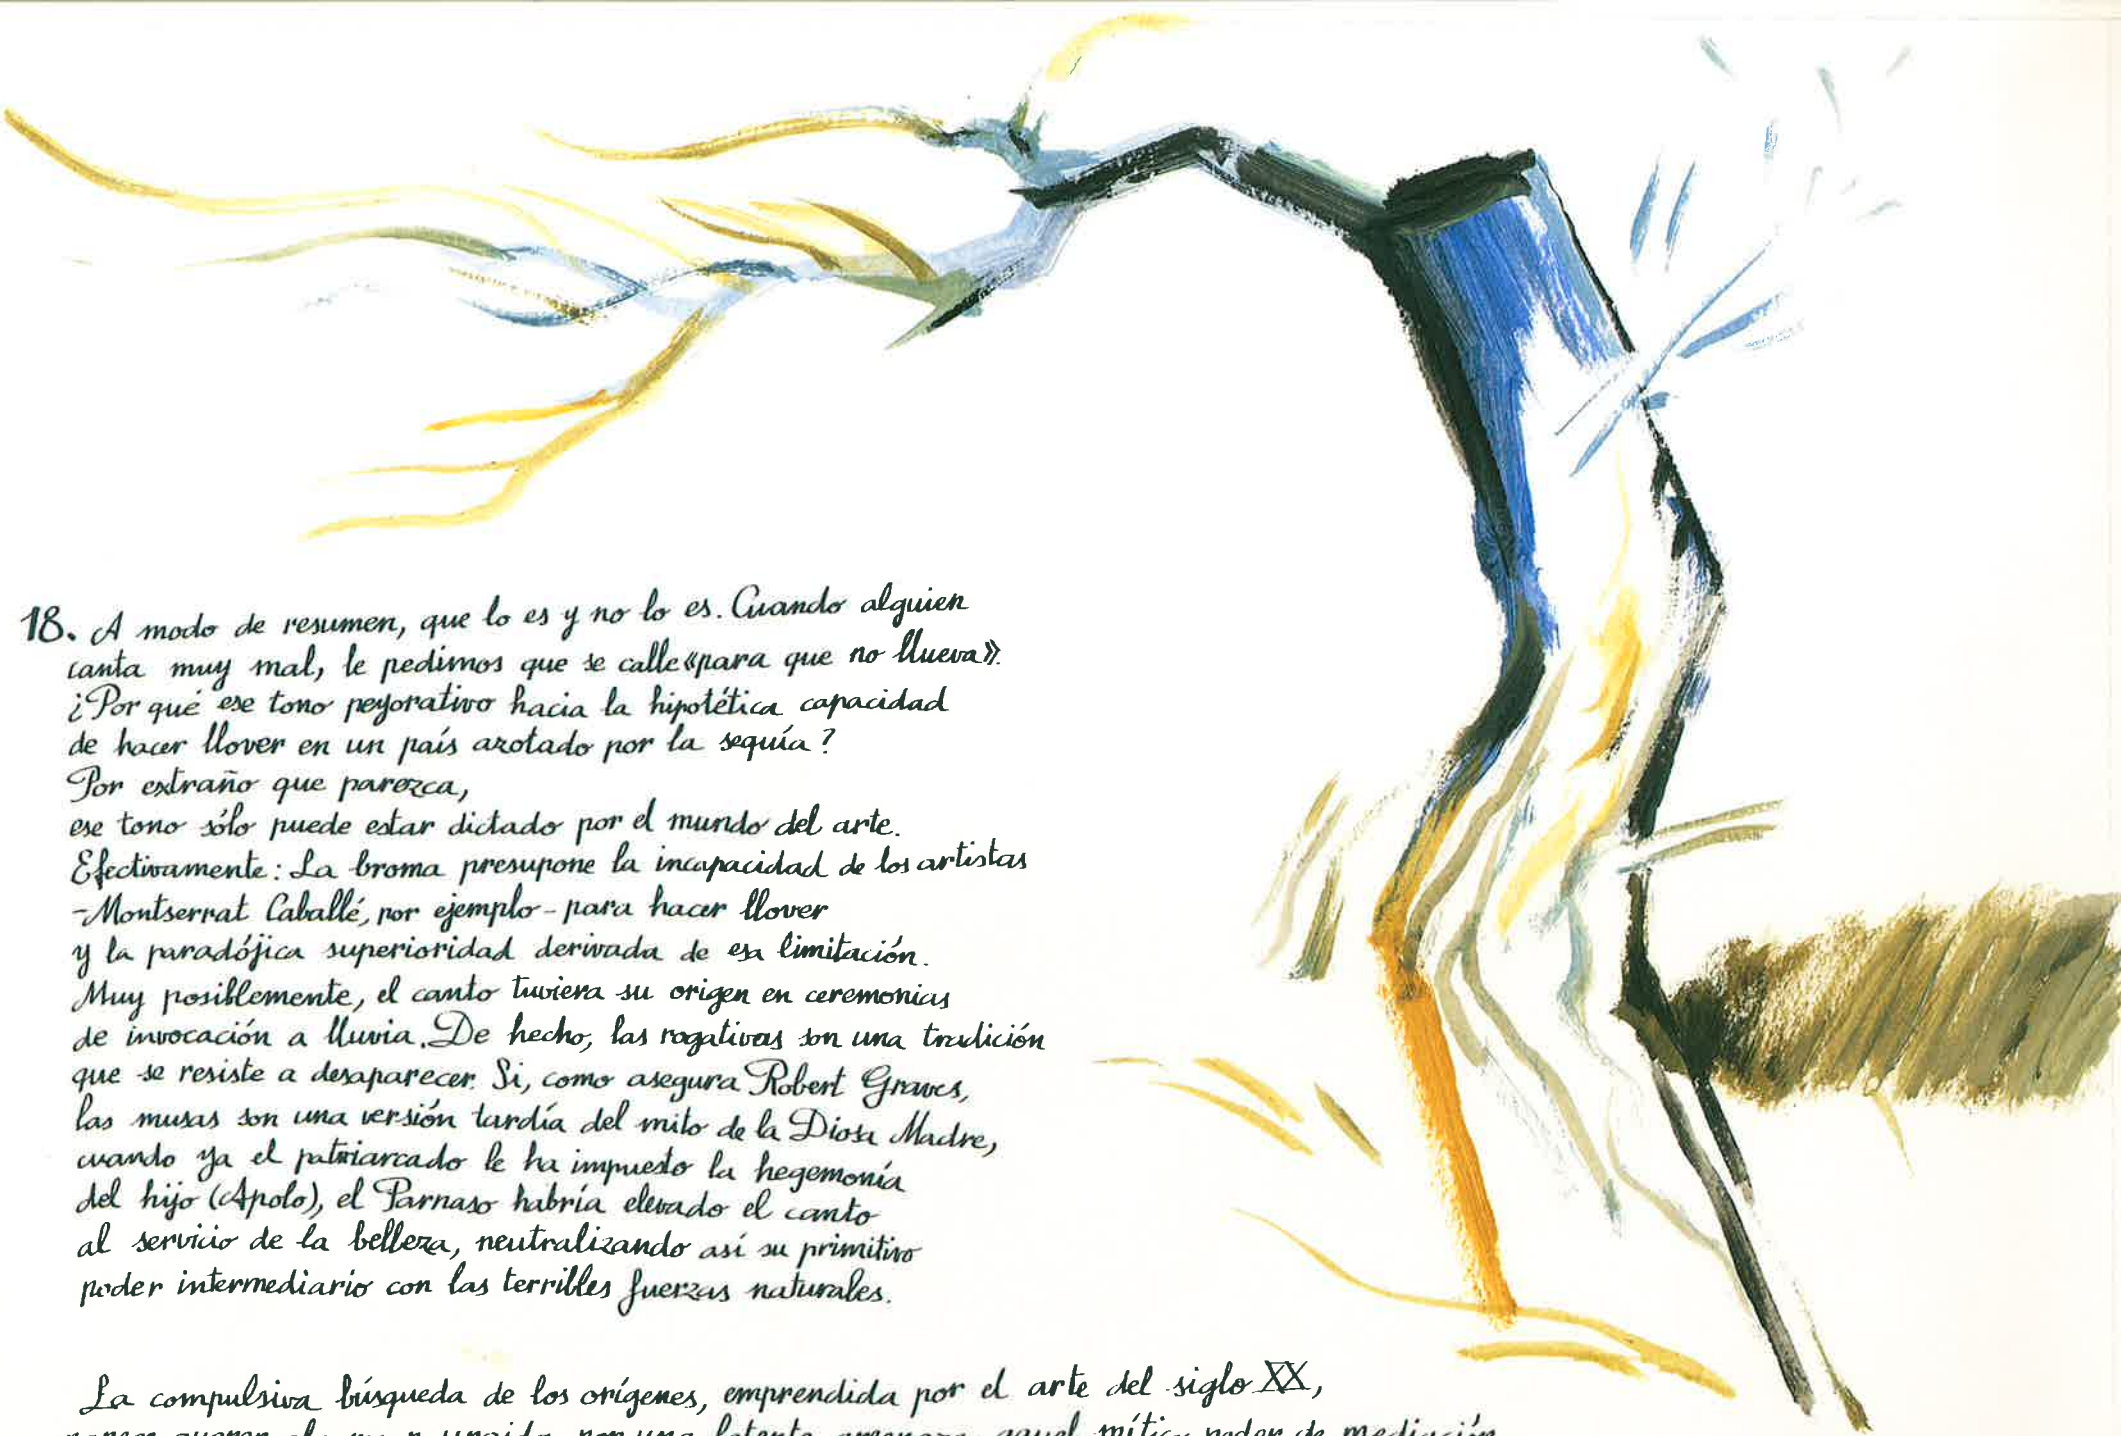 18. A modo de resumen, que lo es y no lo es. Cuando alguien
canta muy mal, le pedimos que se calle «para que no llueva».
¿Por qué ese tono peyorativo hacia la hipotética capacidad
de hacer llover en un país azotado por la sequía?
Por extraño que parezca,
ese tono sólo puede estar dictado por el mundo del arte.
Efectivamente: La broma presupone la incapacidad de los artistas
-Montserrat Caballé, por ejemplo- para hacer llover
y la paradójica superioridad derivada de esa limitación.
Muy posiblemente, el canto tuviera su origen en ceremonias
de invocación a lluvia. De hecho, las rogativas son una tradición
que se resiste a desaparecer. Si, como asegura Robert Graves,
las musas son una versión tardía del mito de la Diosa Madre,
cuando ya el patriarcado le ha impuesto la hegemonía
del hijo (Apolo), el Parnaso habría elevado el canto
al servicio de la belleza, neutralizando así su primitivo
poder intermediario con las terribles fuerzas naturales.
La compulsiva búsqueda de los orígenes, emprendida por el arte del siglo XX,
por una latente amenaza, aquel mítico poder de mediación